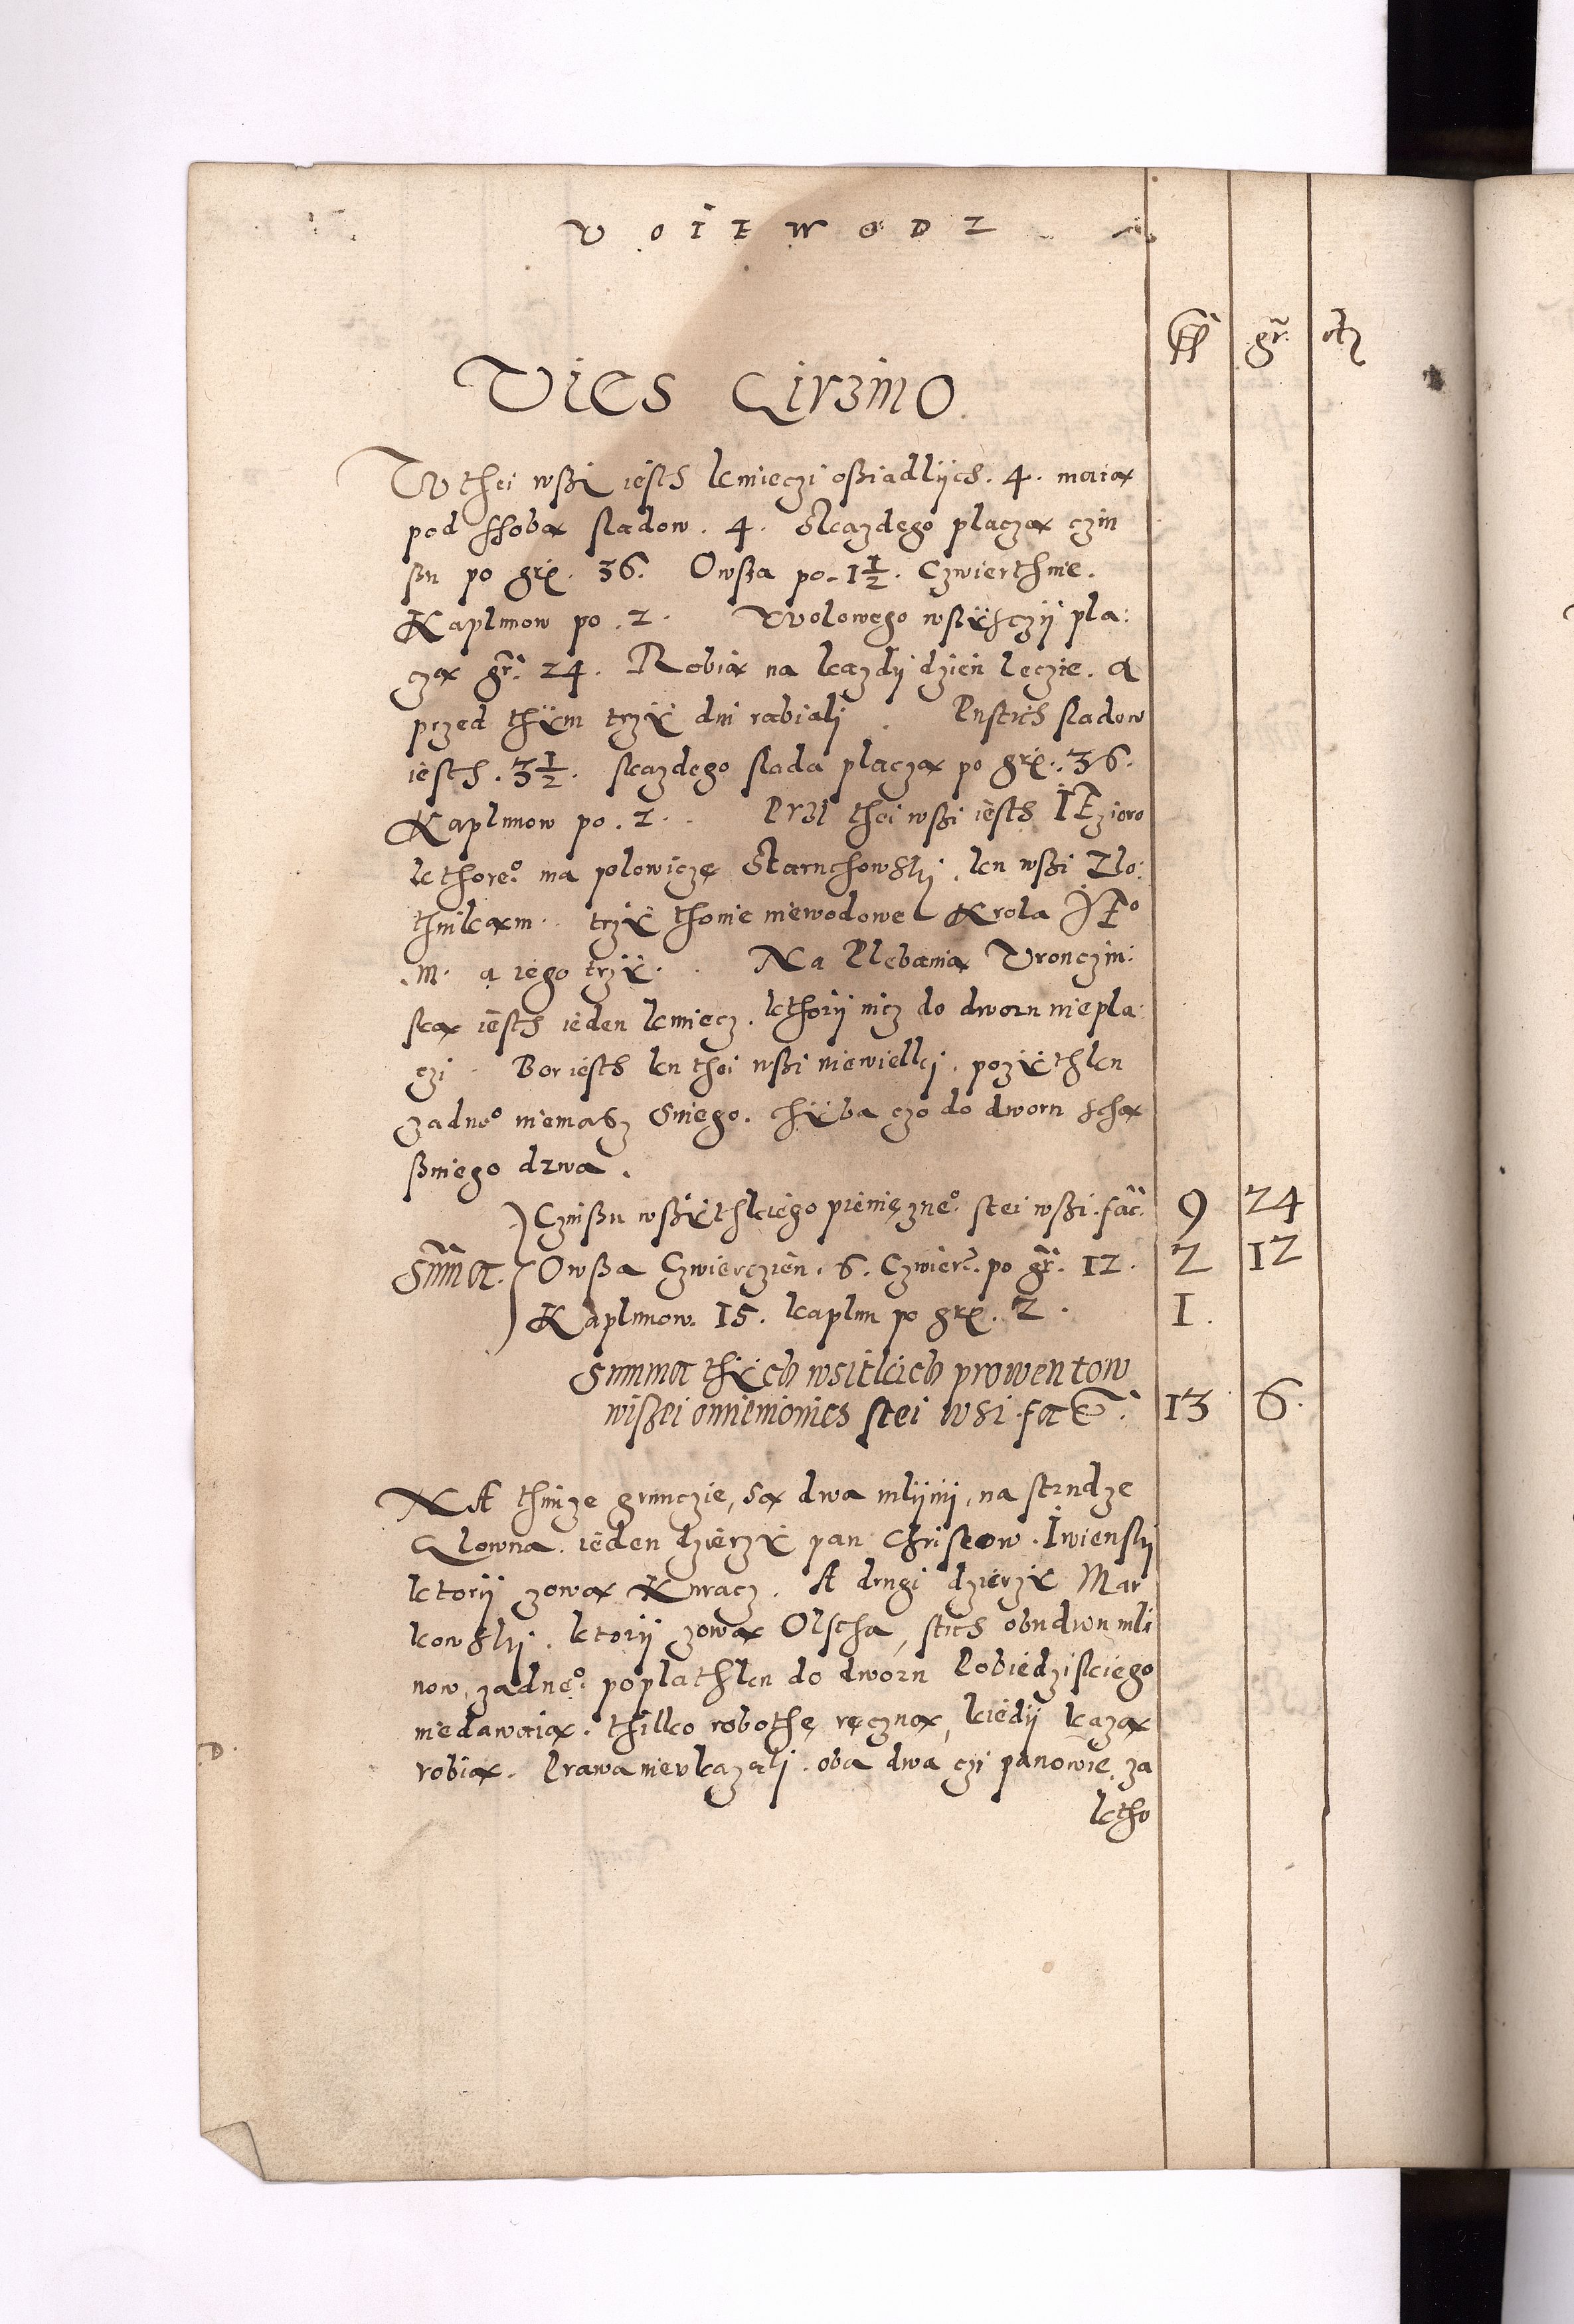 VOIEWODZ
fl gr
Vies Girzino
W thei wßi iesth kmieczi oßiadlÿch . 4 . maiax
pod ssobax sladow . 4 . Skazdego placzax czin
ßu po grx . 36 . Owßa po . 1 1/2 . Czwierthnie .
Kaplunow po . 2 . Wolowego wßÿsczÿ pla:
czax gr. 24 . Robiax na kazdÿ dzien leczie . a
przed thÿm trzÿ dni rabiali . Pustich sladow
iesth . 3 1/2 . skazdego slada placzax po grx . 36 .
Kaplunow po . 2 . Przi thei wßi iesth IEzioro
kthoreo ma polowiczę Staruchowski . ku wßi Zlo:
thnikam . trzÿ thonie niewodowe Krola JEo
M . a iego trzÿ . Na Plebania Vronczin:
skax iesth ieden kmiecz . kthorÿ nicz do dworu niepla:
czi . Bor iesth ku thei wßi niewielki . pozÿthku
zadneo niemasz sniego . chÿba czo do dworu schax
ßniego drwa .
Sũma . Czinßu wßÿthkiego pienięzneo stei wßi . fac. 9 24
Owßa Czwierczien . 6 . Czwierc. po gr. 12 . 2 12
Kaplunow . 15 . kaplun po grx . 2 . 1 .
Summa thÿch wsitkich prowentow
wißei omienionich stei wsi . fac. 13 6
NA thimze grunczie, sax dwa mlÿnÿ, na strudze
Glowna . ieden dzierzÿ pan Christow . Iwienskÿ
ktorÿ zowax Kuracz . A drugi dzierzÿ Mar
kowskÿ . ktorÿ zowax Olscha, stich obudwu mli
now, zadneo poplathku do dworu Pobiedziskiego
niedawaiax . thilko robothę ręcznax, kiedÿ kazax
robiax . Prawa nieukazali . oba dwa czi panowie, za
ktho
D .